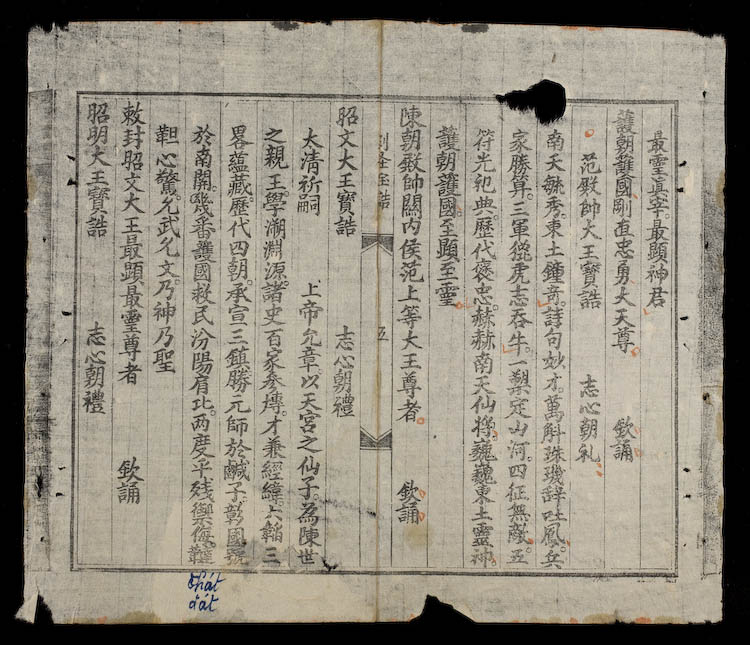 最靈真宰最顕神君
護朝護國剛直忠勇大天尊 欽誦
范殿帥大王寶誥 志心朝礼
南天毓秀東土鍾竒詩句妙才萬斛珠璣辞吐鳳兵
家勝算三軍貔虎志吞牛一槊定山河四征無敵五
符光祀典歷代褒忠赫赫南天仙將巍巍東土靈神
護朝護國至顕至靈
陳朝殿帥關内侯范上等大王尊者 欽誦
五
昭文大王寶誥 志心朝禮
太清祈嗣 上帝允章以天宮之仙子為陳世
之親王學溯淵源諸史百家參摶才兼經緯六韜三
畧蘊藏歷代四朝承宣三鎮勝元師於鹹子彰國號
於南關幾番護國救民汾陽肩比两度平残禦侮韃
靼心驚允武允文乃神乃聖
敕封昭文大王最顕最靈尊者 欽誦
昭明大王寶誥 志心朝禮
thát
đát